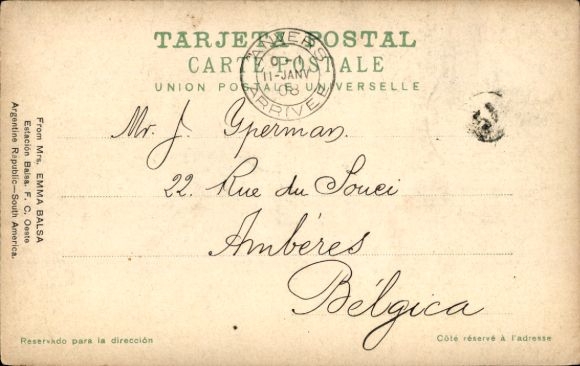 TARJETA POSTAL
CARTE POSTALE
UNION POSTALE UNIVERSELLE
ANVERS
11-JANV
08
ARRIVÉE
51
Mr. J. Yperman.
22. Rue du Souci
Ambéres
Bélgica
From Mrs. EMMA BALSA
Estación Balsa. F. C. Oeste
Argentine Republic—South America.
Reservado para la dirección
Côté réservé à l'adresse